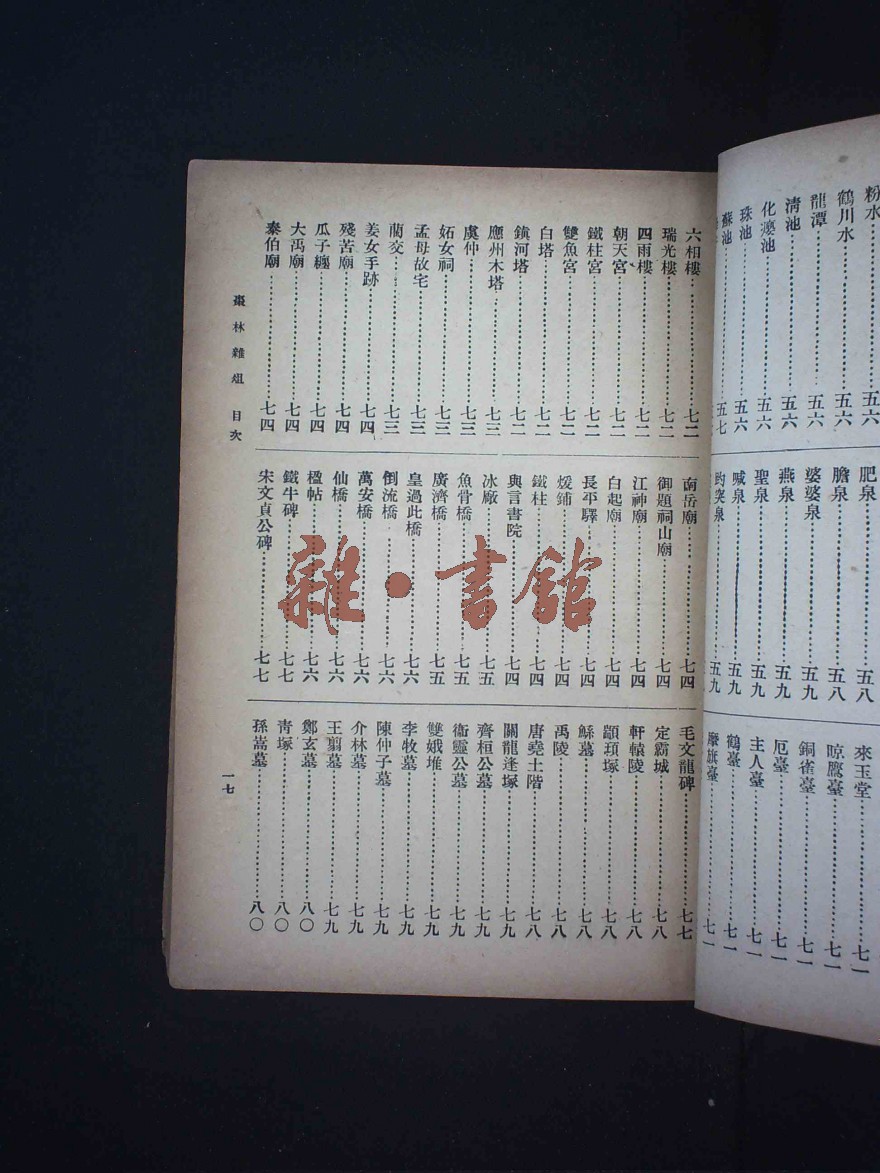 粉水
鶴川水……五六
龍潭……五六
清池……五六
化癭池……五六
珠池……五六
蘇池……五七
肥泉……五八
膽泉……五八
婆婆泉……五九
燕泉……五九
聖泉……五九
喊泉……五九
趵突泉……五九
來玉堂……七一
晾鷹臺……七一
銅雀臺……七一
厄臺……七一
主人臺……七一
鶴臺……七一
麾旗臺……七一
六相樓……七二
瑞光樓……七二
四雨樓……七二
朝天宮……七二
鐵柱宮……七二
雙魚宮……七二
白塔……七二
鎮河塔……七二
應州木塔……七三
虞仲……七三
妬女祠……七三
孟母故宅……七三
藺交……七三
姜女手跡……七四
殘苦廟……七四
瓜子纏……七四
大禹廟……七四
泰伯廟……七四
南岳廟……七四
御題祠山廟……七四
江神廟……七四
白起廟……七四
長平驛……七四
煖鋪……七四
鐵柱……七四
興言書院……七四
冰廠……七五
魚骨橋……七五
廣濟橋……七五
皇過此橋……七六
倒流橋……七六
萬安橋……七六
仙橋……七六
楹帖……七六
鐵牛碑……七七
宋文貞公碑……七七
毛文龍碑……七七
定霸城……七八
軒轅陵……七八
顓頊塚……七八
鯀墓……七八
禹陵……七八
唐堯土階……七八
關龍逢塚……七九
齊桓公墓……七九
衞靈公墓……七九
雙娥堆……七九
李牧墓……七九
陳仲子墓……七九
介林墓……七九
王翦墓……七九
鄭玄墓……八〇
靑塚……八〇
孫嵩墓……八〇
棗林雜俎 目次
一七
雜·書館